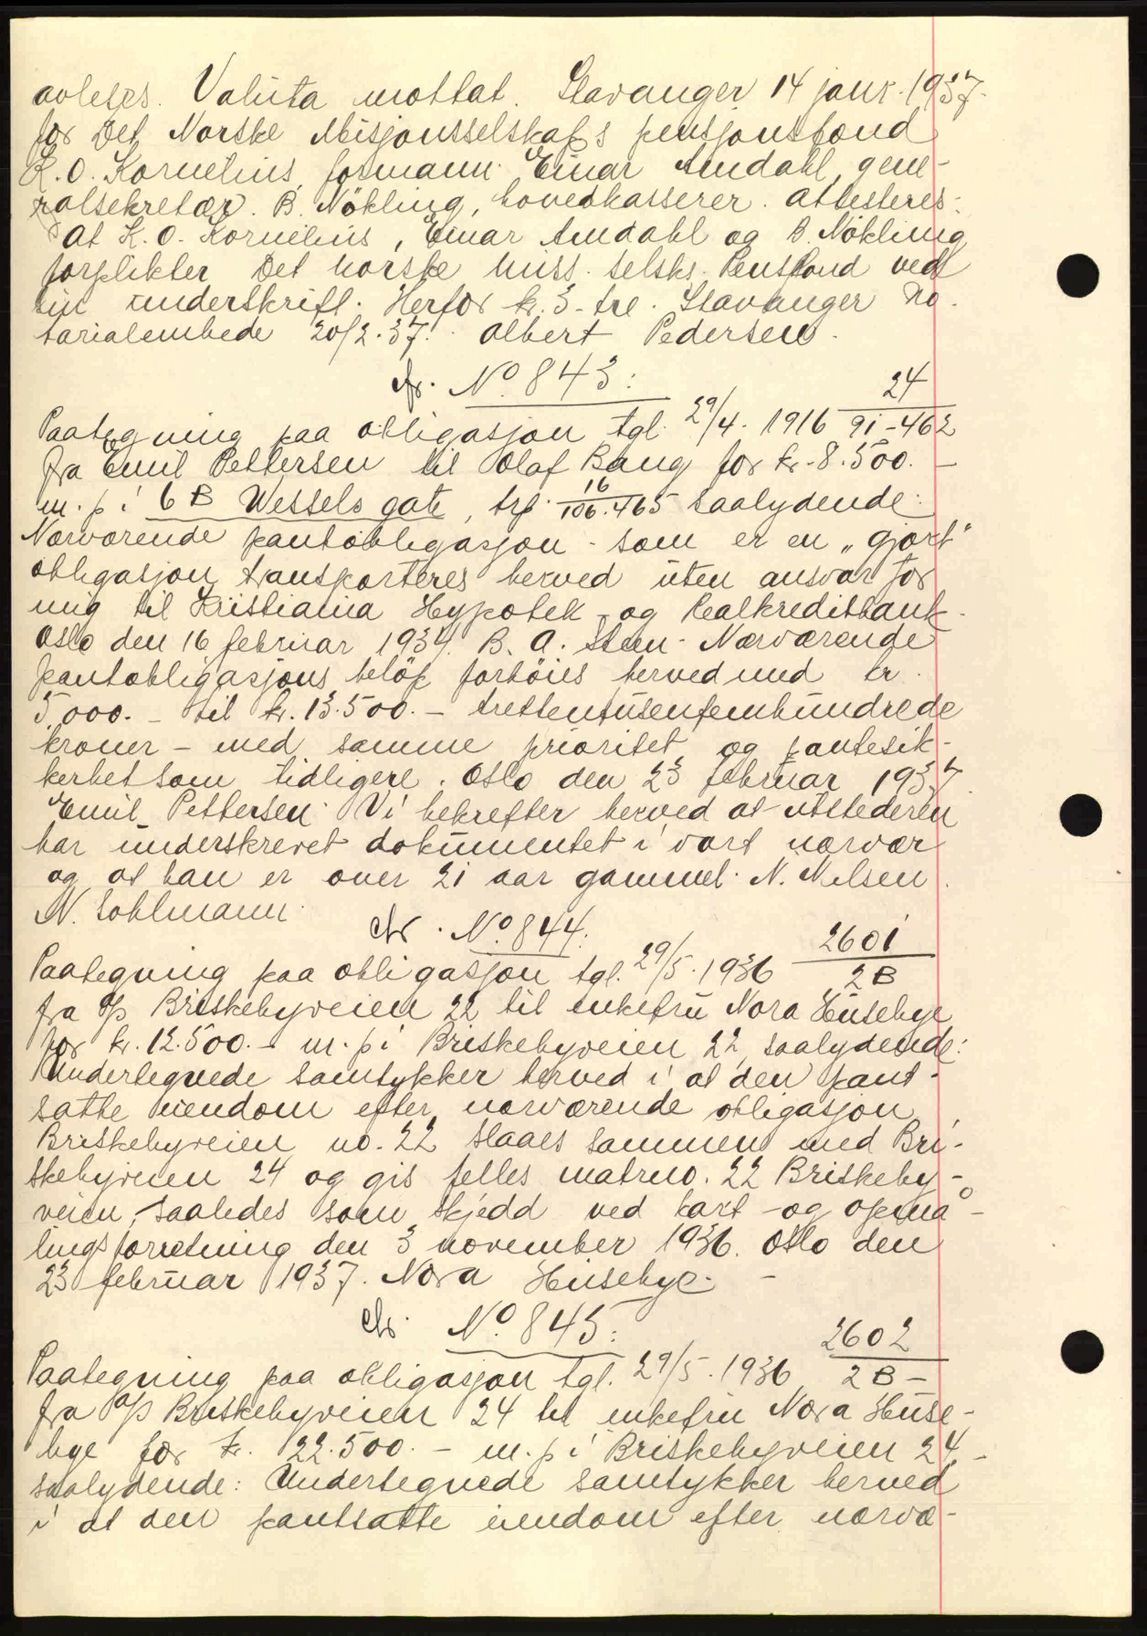 avleses. Valuta mottat. Stavanger 14 janr. 1937.
for Det Norske Misjonsselskaps pensjonsfond
K. O. Kornelius, formann. Einar Amdahl, gene-
ralsekretær. B. Nökling, hovedkasserer. Attesteres:
At K. O. Kornelius, Einar Amdahl og B. Nökling
forplikter Det norske miss. selsks. Pensfond ved
sin underskrift. Herfor kr. 3 - tre. Stavanger No-
tarialembede 20/2.37. Albert Pedersen.
No 843: 24
Paategning paa obligasjon tgl. 29/4. 1916 91-462
fra Emil Pettersen til Olaf Bang for kr. 8.500. -
m. p. i 6 B Wessels gate, trf. 16/106.465 saalydende:
Nærværende pantobligasjon - som er en „gjort"
obligasjon, transporteres herved uten ansvar for
mig til Kristiania Hypotek- og Realkreditbank.
Oslo den 16 februar 1934. B. A. Steen. Nærværende
pantobligasjons beløp forhöies herved med kr.
5.000. - til kr. 13.500. - trettentusenfemhundrede
kroner - med samme prioritet og pantesik-
kerhet som tidligere. Oslo den 23 februar 1937
Emil Pettersen. Vi bekrefter herved at utstederen
har underskrevet dokumentet i vort nærvær
og at han er over 21 aar gammel. N. Nilsen.
N. Sohlmann.
No. 844. 2601
Paategning paa obligasjon tgl. 29/5. 1936 2B
fra A/S Briskebyveien 22 til enkefru Nora Husebye
for kr. 12.500. - m. p. i Briskebyveien 22, saalydende:
Undertegnede samtykker herved i at den pant-
satte eiendom efter nærværende obligasjon
Briskebyveien no. 22 slaaes sammen med Bri-
skebyveien 24 og gis felles matrno. 22 Briskeby-
veien, saaledes som skjedd ved kart- og opmå-
lingsforretning den 3 november 1936. Oslo den
23 februar 1937. Nora Husebye. -
No. 845: 2602
Paategning paa obligasjon tgl. 29/5. 1936 2B -
fra A/S Briskebyveien 24 til enkefru Nora Huse-
bye for kr. 22.500. - m. p. i Briskebyveien 24, -
saalydende: Undertegnede samtykker herved
i at den pantsatte eiendom efter nærvæ-